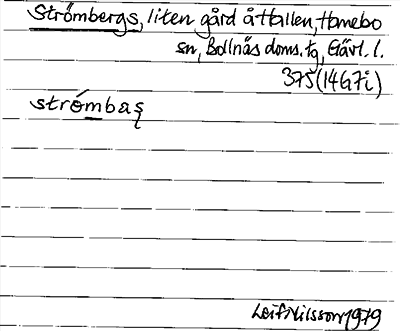 Strömbergs, liten gård å Hallen, Hanebo
sn, Bollnäs doms. tg, Gävl. l.
375 (1467i)
strómbaş
Leif Nilsson 1979